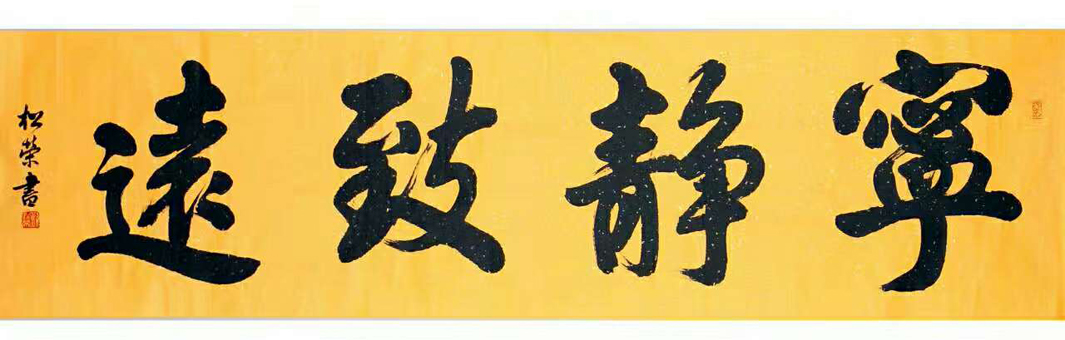 寧靜致遠
松榮書